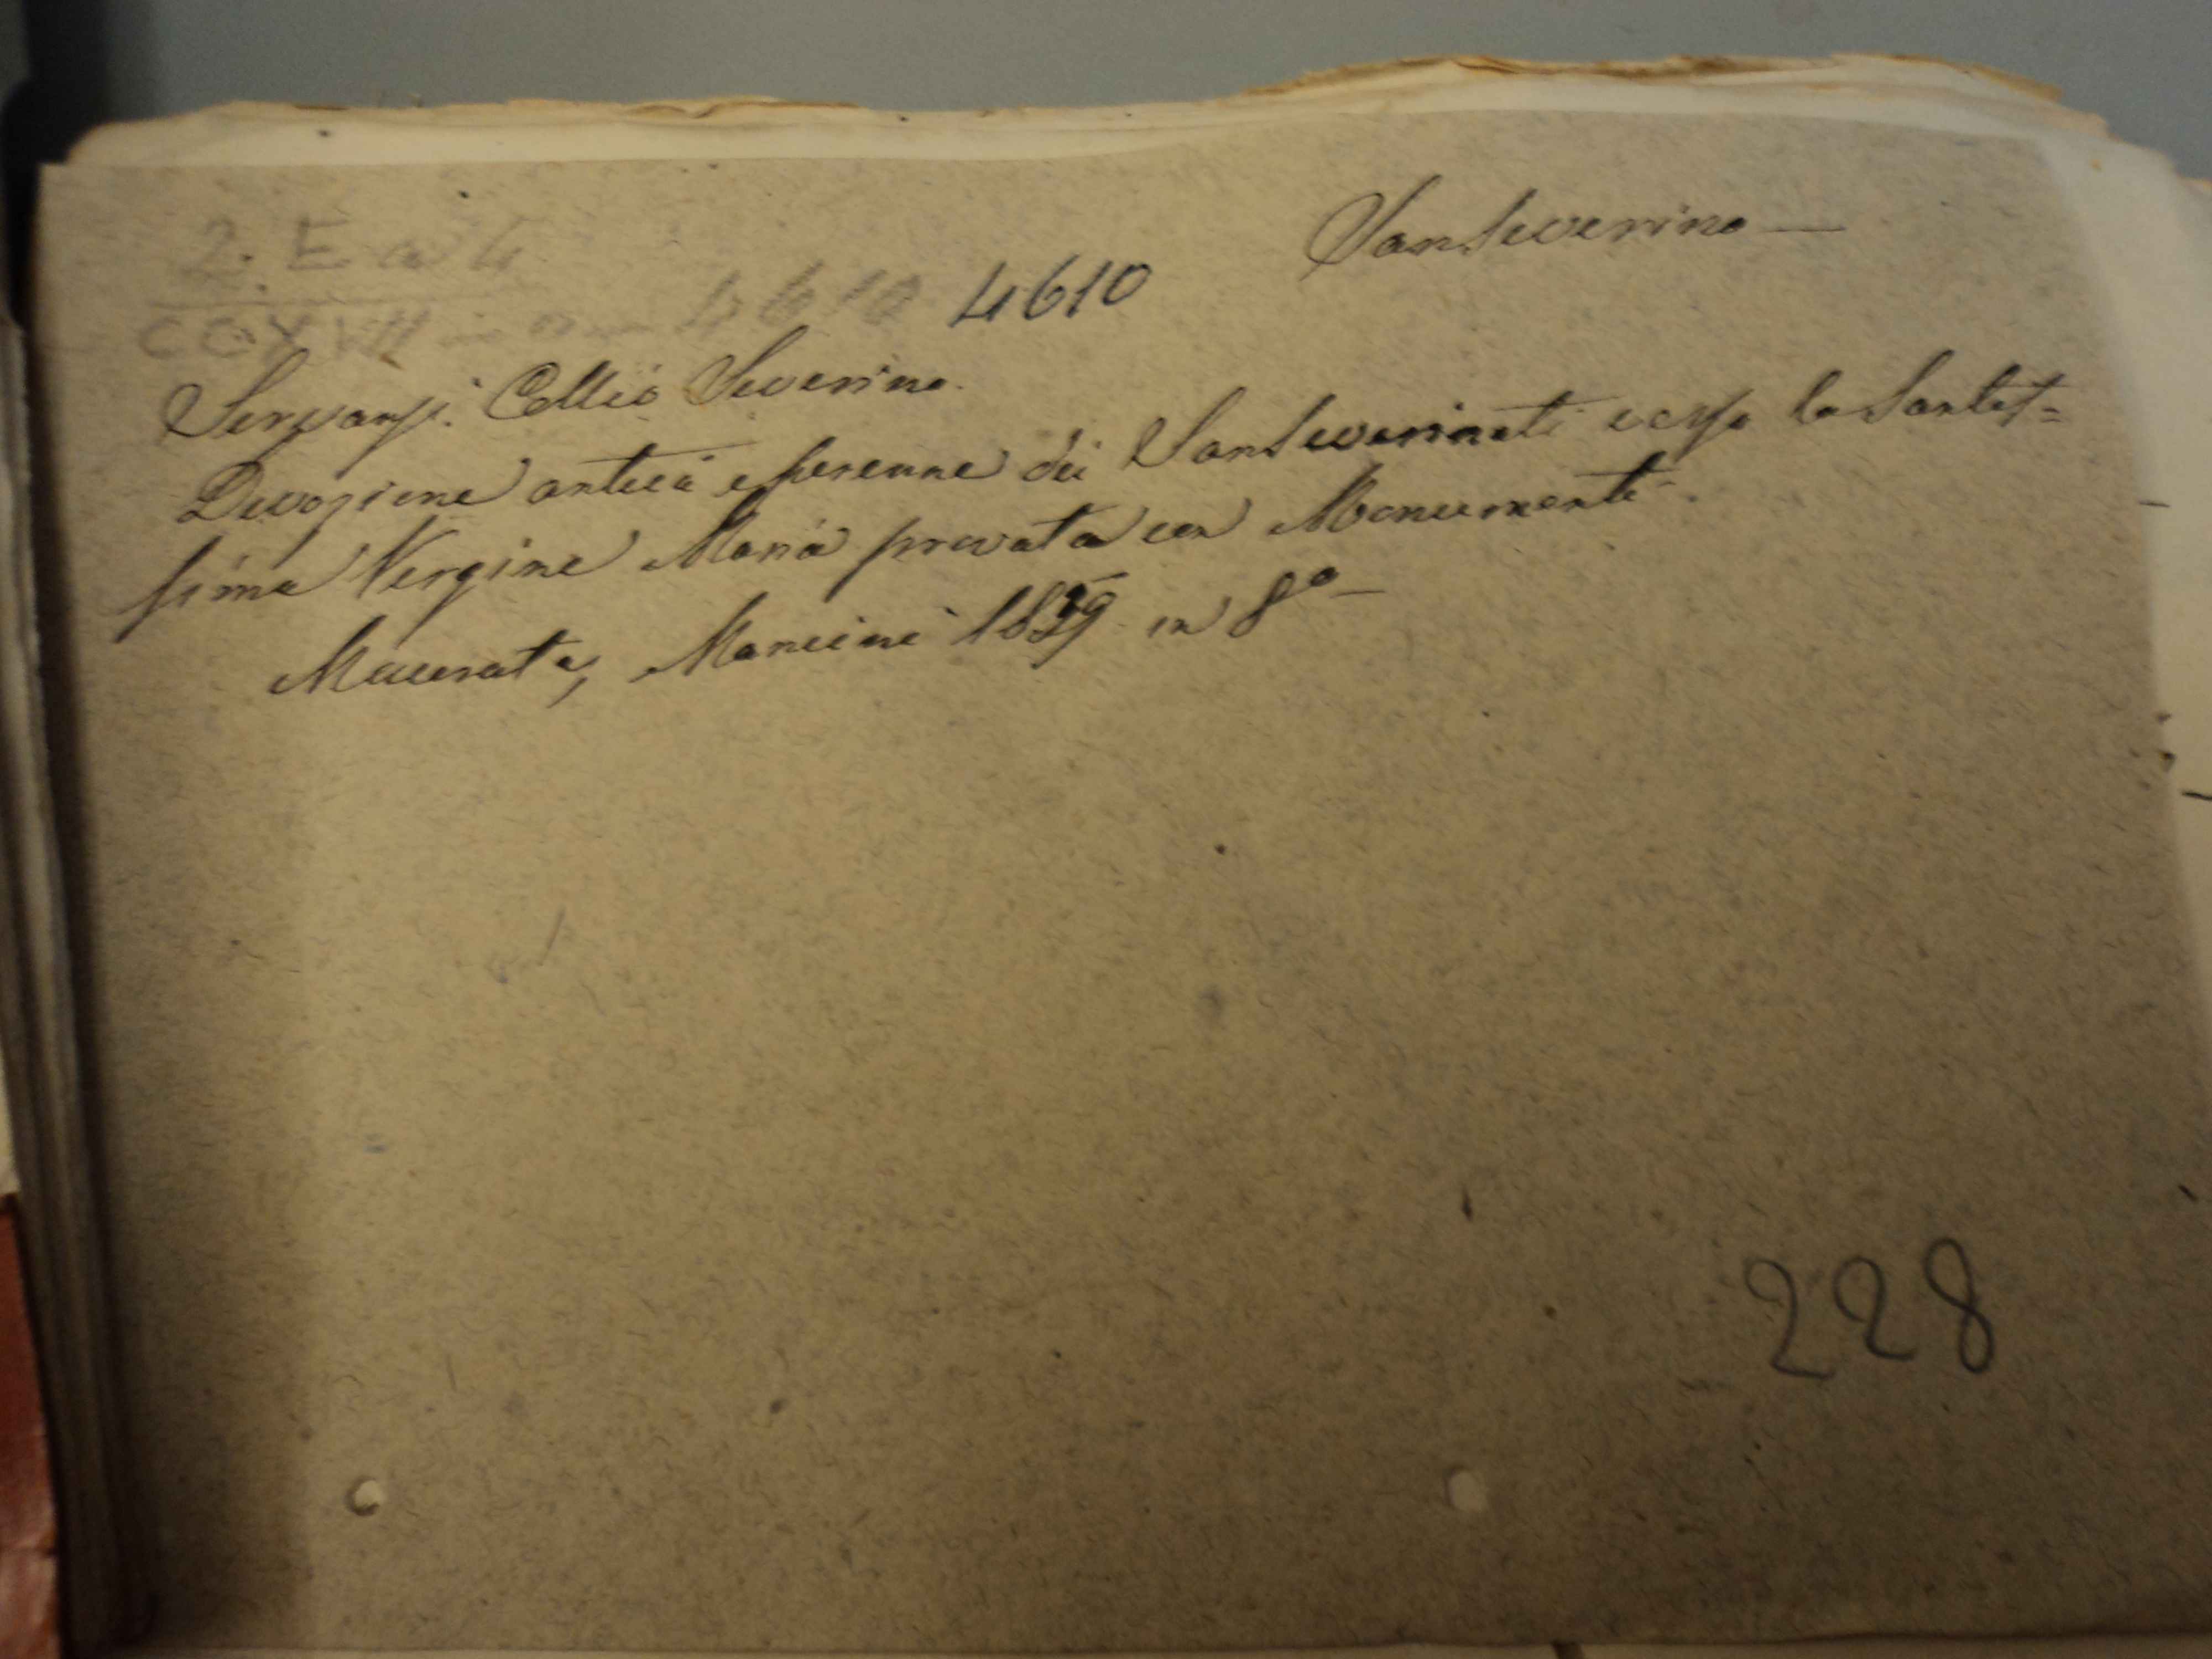 Sanseverino —
2. E a 4
CCXVII 4610 4610
Servanzi Collio Severino.
Devozione antica e perenne dei Sanseverinati verso la Santis=
sima Vergine Maria provata con Monumenti.
Macerata, Mancini 1859 in 8° —
228